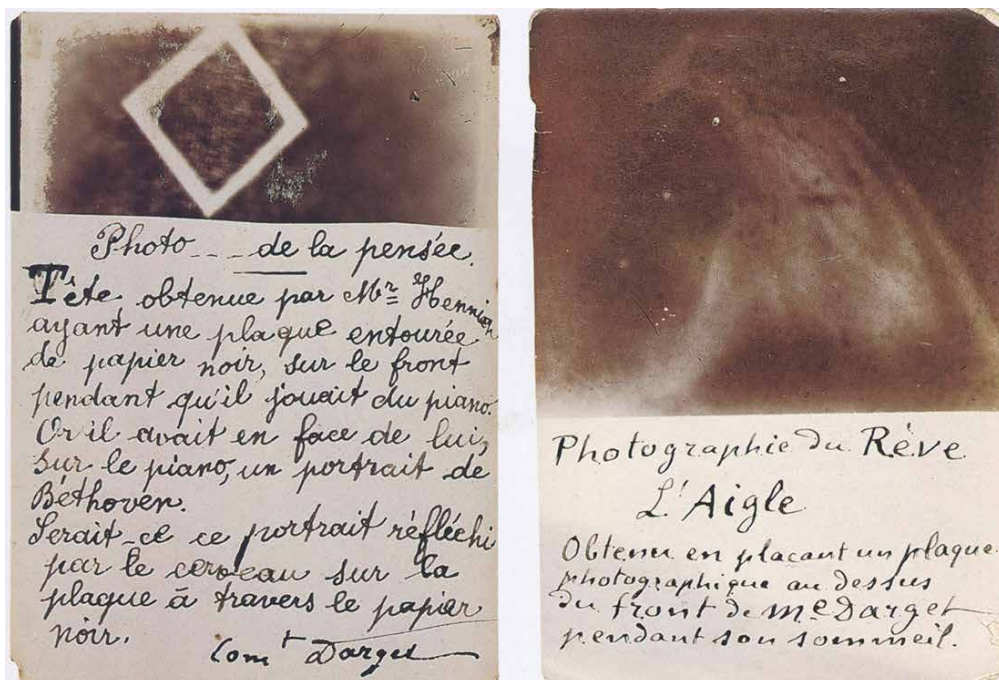 Photo___ de la pensée.
Tête obtenue par Mr Hennion
ayant une plaque entourée
de papier noir, sur le front
pendant qu'il jouait du piano.
Or il avait en face de lui,
sur le piano, un portrait de
Béthoven.
Serait-ce ce portrait réfléchi
par le cerveau sur la
plaque à travers le papier
noir.
Comt Darget
Photographie du Rêve
L'Aigle
Obtenu en plaçant un plaque
photographique au dessus
du front de Me Darget
pendant son sommeil.